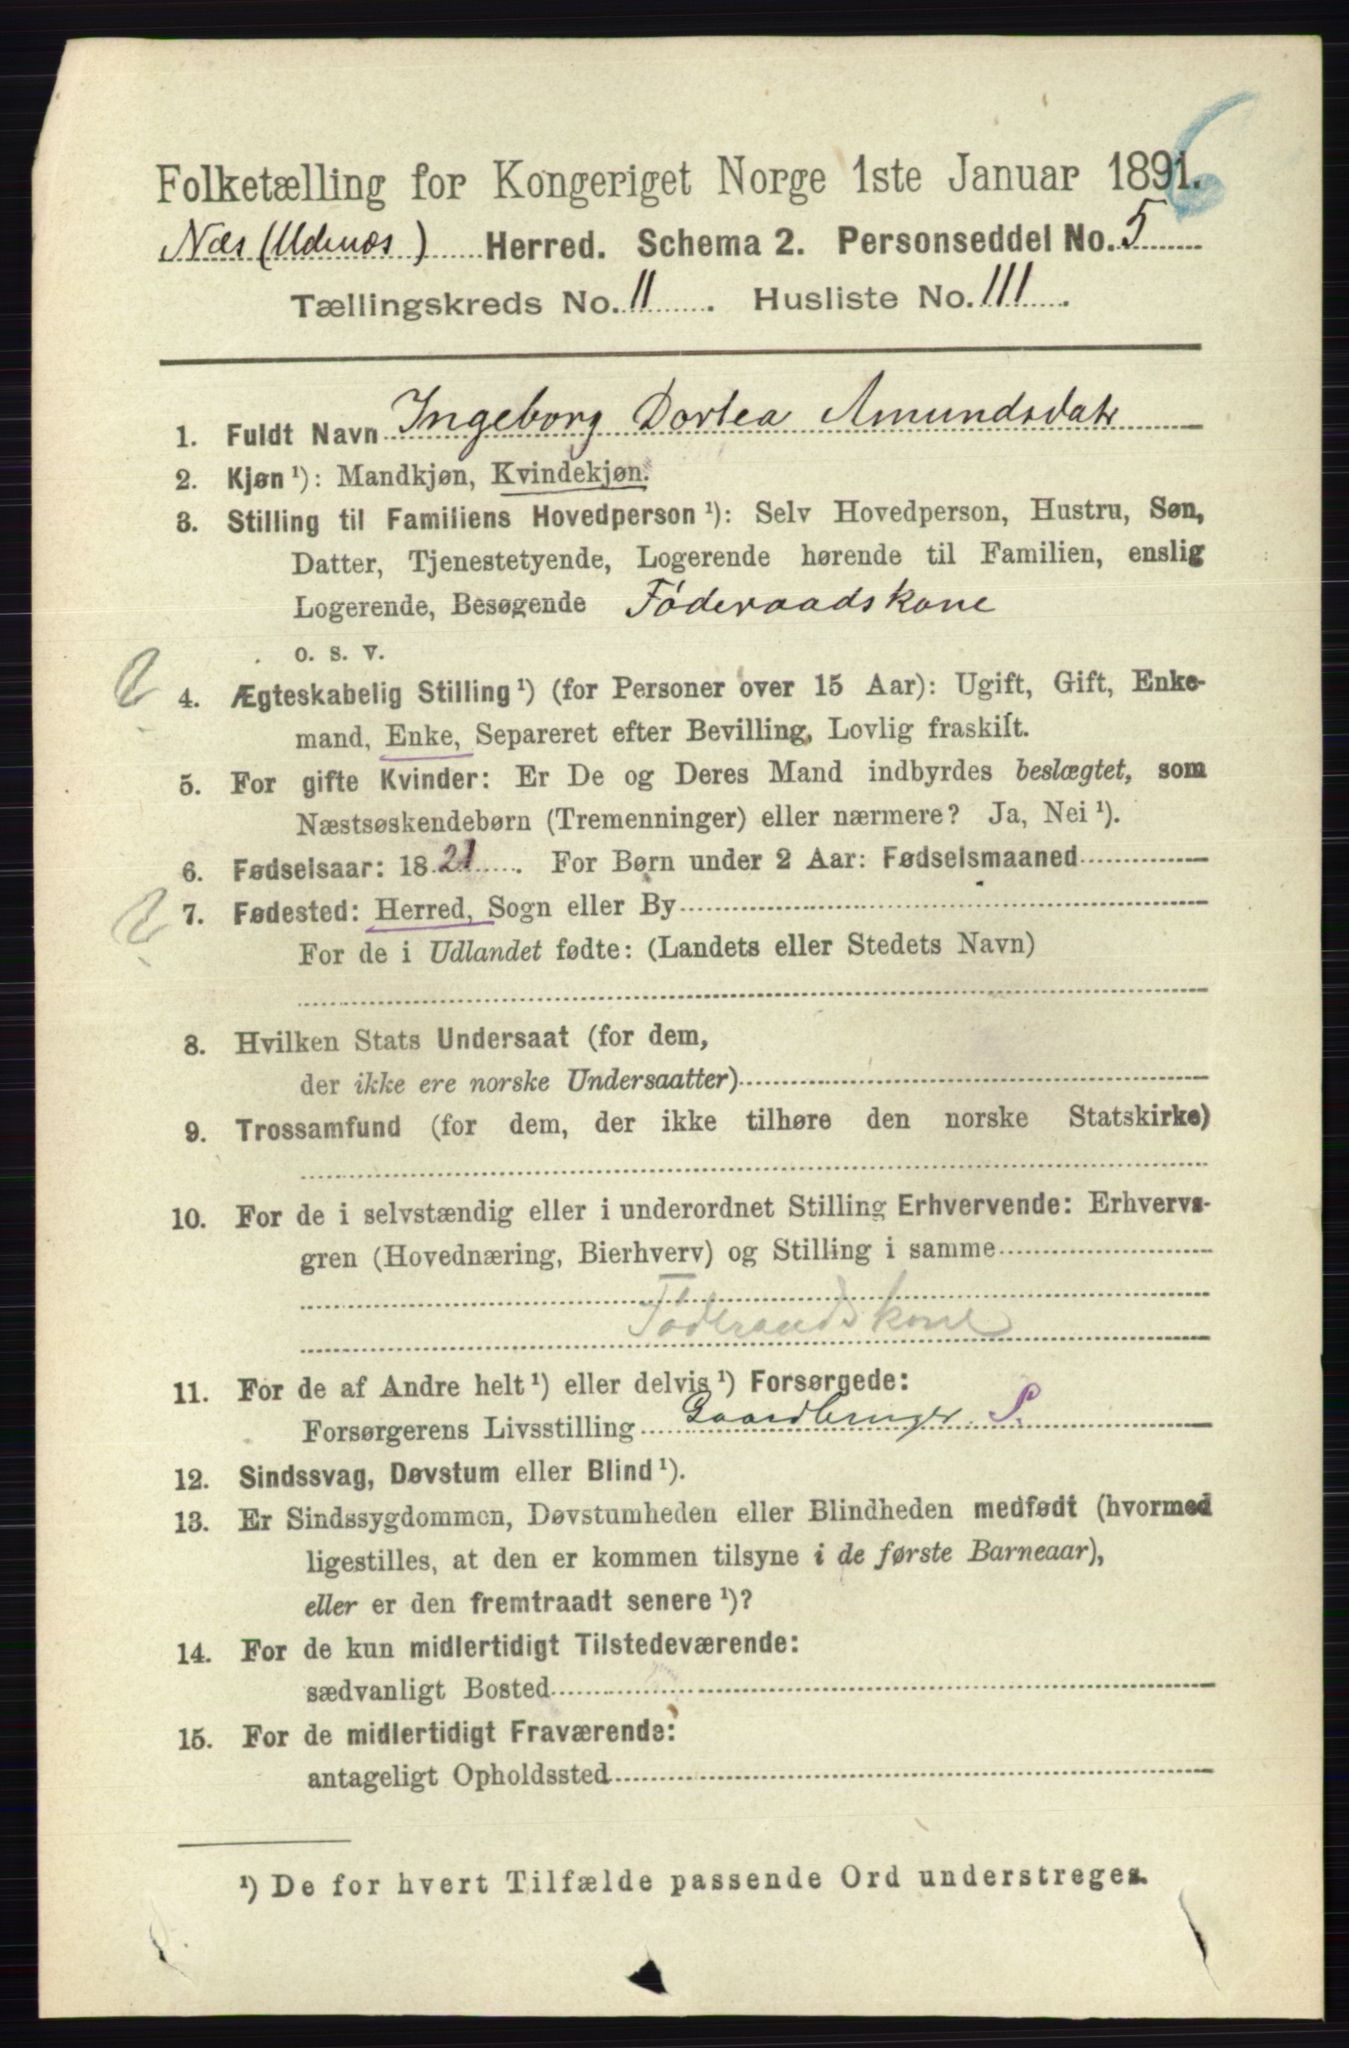 6
Folketælling for Kongeriget Norge 1ste Januar 1891.
Næs (Udenæs) Herred. Schema 2. Personseddel No. 5
Tællingskreds No. 11. Husliste No. 111.
1. Fuldt Navn Ingeborg Dortea Amundsdatr
2. Kjøn ¹): Mandkjøn, Kvindekjøn.
3. Stilling til Familiens Hovedperson ¹): Selv Hovedperson, Hustru, Søn,
Datter, Tjenestetyende, Logerende hørende til Familien, enslig
Logerende, Besøgende Föderaadskone
o. s. v.
4. Ægteskabelig Stilling ¹) (for Personer over 15 Aar): Ugift, Gift, Enke-
mand, Enke, Separeret efter Bevilling, Lovlig fraskilt.
5. For gifte Kvinder: Er De og Deres Mand indbyrdes beslægtet, som
Næstsøskendebørn (Tremenninger) eller nærmere? Ja, Nei ¹).
6. Fødselsaar: 1821. For Børn under 2 Aar: Fødselsmaaned
7. Fødested: Herred, Sogn eller By
For de i Udlandet fødte: (Landets eller Stedets Navn)
8. Hvilken Stats Undersaat (for dem,
der ikke ere norske Undersaatter)
9. Trossamfund (for dem, der ikke tilhøre den norske Statskirke)
10. For de i selvstændig eller i underordnet Stilling Erhvervende: Erhvervs-
gren (Hovednæring, Bierhverv) og Stilling i samme
Föderaadskone
11. For de af Andre helt ¹) eller delvis ¹) Forsørgede:
Forsørgerens Livsstilling Gaardbruger. S.
12. Sindssvag, Døvstum eller Blind ¹).
13. Er Sindssygdommen, Døvstumheden eller Blindheden medfødt (hvormed
ligestilles, at den er kommen tilsyne i de første Barneaar),
eller er den fremtraadt senere ¹)?
14. For de kun midlertidigt Tilstedeværende:
sædvanligt Bosted
15. For de midlertidigt Fraværende:
antageligt Opholdssted
¹) De for hvert Tilfælde passende Ord understreges.